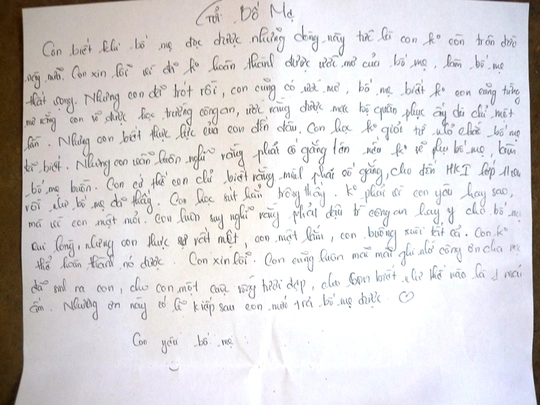 Gửi Bố Mẹ
Con biết khi bố mẹ đọc được những dòng này tức là con ko còn trên đời
này nữa. Con xin lỗi vì đã ko hoàn thành được ước mơ của bố mẹ, làm bố mẹ
thất vọng. Nhưng con đã trót rồi, con cũng có ước mơ, bố mẹ biết ko con cũng từng
mơ rằng con sẽ được học trường công an, ước rằng được mặc bộ quân phục ấy dù chỉ một
lần. Nhưng con biết thực lực của con đến đâu. Con học ko giỏi từ nhỏ chắc bố mẹ
đã biết. Nhưng con luôn luôn nghĩ rằng phải cố gắng lên nếu ko sẽ phụ bố mẹ, làm
bố mẹ buồn. Con cứ thế con chỉ biết rằng mình phải cố gắng, cho đến HKI lớp
rồi như bố mẹ đã thấy. Con học sút hẳn trông thấy. Ko phải vì con yêu hay sao
mà vì con mệt mỏi. Con luôn suy nghĩ rằng phải đậu trường công an hay y cho bố mẹ
vui lòng, nhưng con thực sự rất mệt, con mệt lắm, con buông xuôi tất cả. Con ko
thể hoàn thành nó được. Con xin lỗi. Con cũng luôn mãi mãi ghi nhớ công ơn cha mẹ
đã sinh ra con, cho con một cuộc sống tươi đẹp, cho con biết như thế nào là 1 mái
ấm. Nhưng ơn này có lẽ kiếp sau con mới trả bố mẹ được.
Con yêu bố mẹ